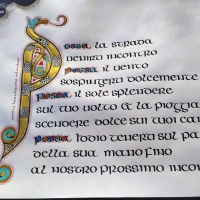 Possa la strada
venirti incontro
Possa il vento
sospingerti dolcemente
Possa il sole splendere
sul tuo volto & la pioggia
scendere dolce sui tuoi
Possa Iddio tenerti sul
della sua mano fino
al nostro prossimo